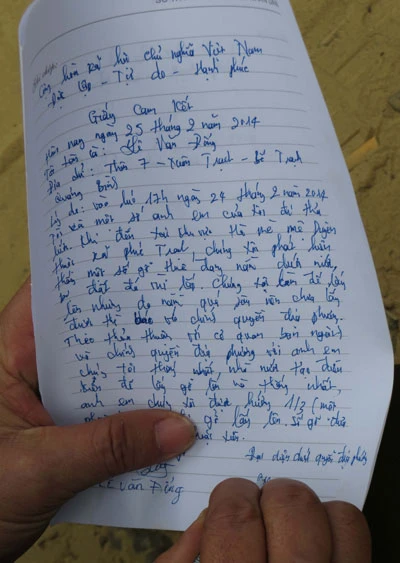 Cộng hòa xã hội chủ nghĩa Việt Nam
Độc lập - Tự do - Hạnh phúc
Giấy Cam Kết
Hôm nay ngày 25 tháng 2 năm 2014
Tôi tên là: Lê Văn Đống
Địa chỉ: Thôn 7 - Xuân Trạch - Bố Trạch
Quảng Bình
Lý do: vào lúc 17h ngày 24 tháng 2 năm 2014
Tôi và một số anh em của tôi đi
khi đến khu vực
thuộc xã phúc Trạch, chúng tôi phát hiện
thấy một số gỗ dạng nằm dưới nước,
chúng tôi bàn để lấy
lên nhưng do nằm quá sâu nên chưa lấy
được thì báo với chính quyền địa phương.
Theo thỏa thuận với cơ quan ban ngành
và chính quyền địa phương với anh em
chúng tôi thống nhất, nhà nước tạo điều
kiện để lấy gỗ lên và thống nhất,
anh em chúng tôi được hưởng 1/3 (một
gỗ lấy lên. số gỗ
Đại diện chính quyền địa phương
Lê Văn Đống